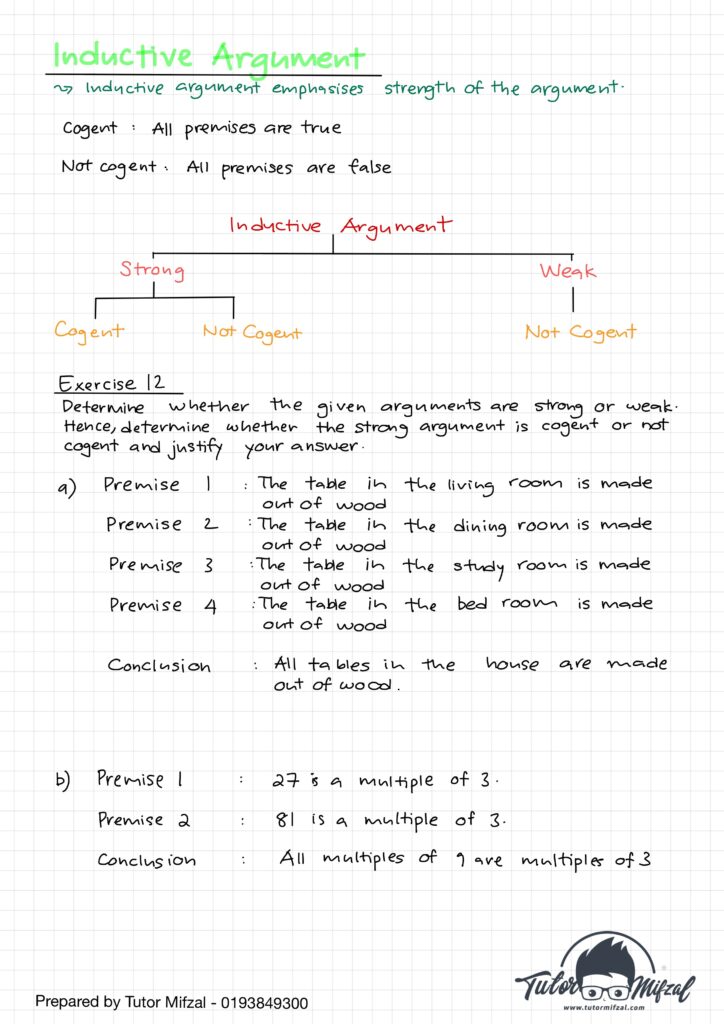 Inductive Argument
↝ Inductive argument emphasises strength of the argument.
Cogent : All premises are true
Not cogent : All premises are false
Inductive Argument
Strong Weak
Cogent Not Cogent Not Cogent
Exercise 12
Determine whether the given arguments are strong or weak.
Hence, determine whether the strong argument is cogent or not
cogent and justify your answer.
a) Premise 1 : The table in the living room is made
out of wood
Premise 2 : The table in the dining room is made
out of wood
Premise 3 : The table in the study room is made
out of wood
Premise 4 : The table in the bed room is made
out of wood
Conclusion : All tables in the house are made
out of wood.
b) Premise 1 : 27 is a multiple of 3.
Premise 2 : 81 is a multiple of 3.
Conclusion : All multiples of 9 are multiples of 3
Tutor Mifzal
www.tutormifzal.com
Prepared by Tutor Mifzal - 0193849300